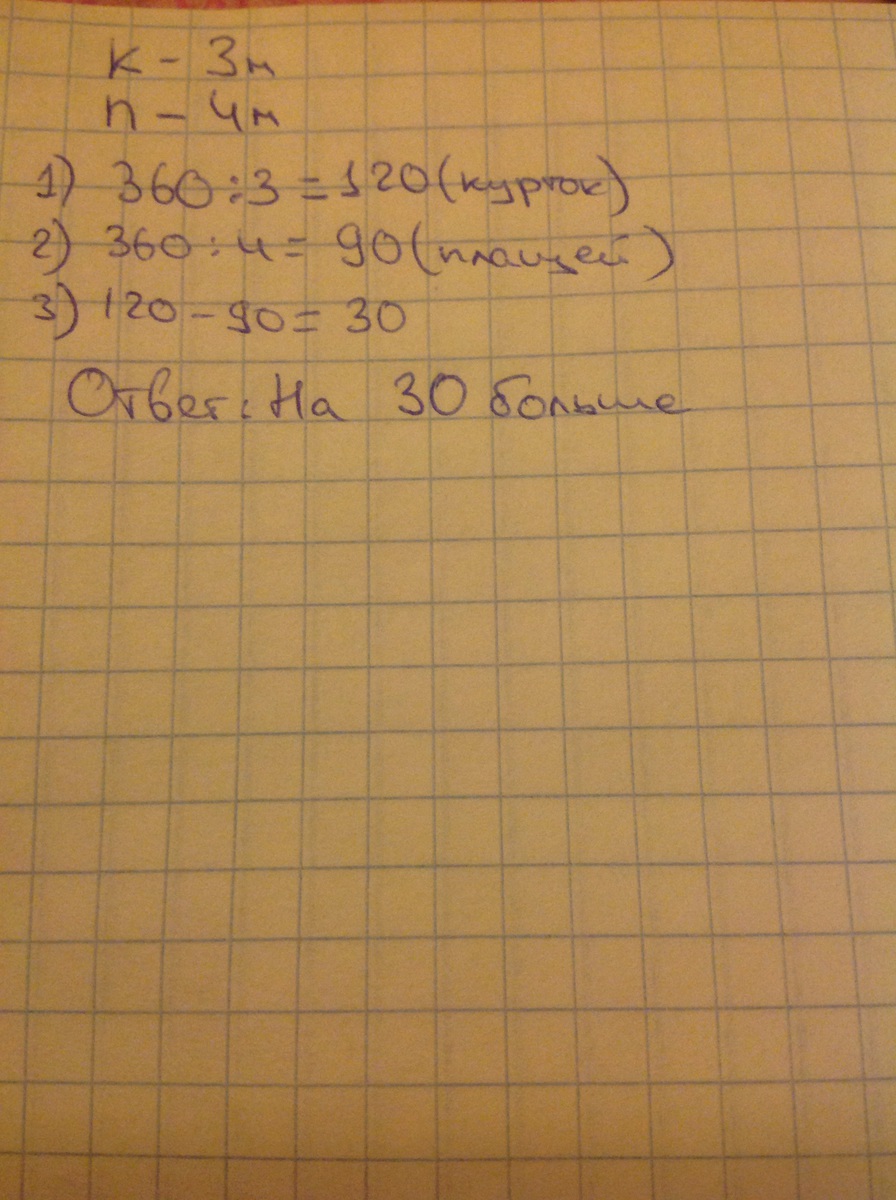 К - 3м
П - 4м
1) 360:3=120(курток)
2) 360:4=90(плащей)
3) 120-90=30
Ответ: На 30 больше